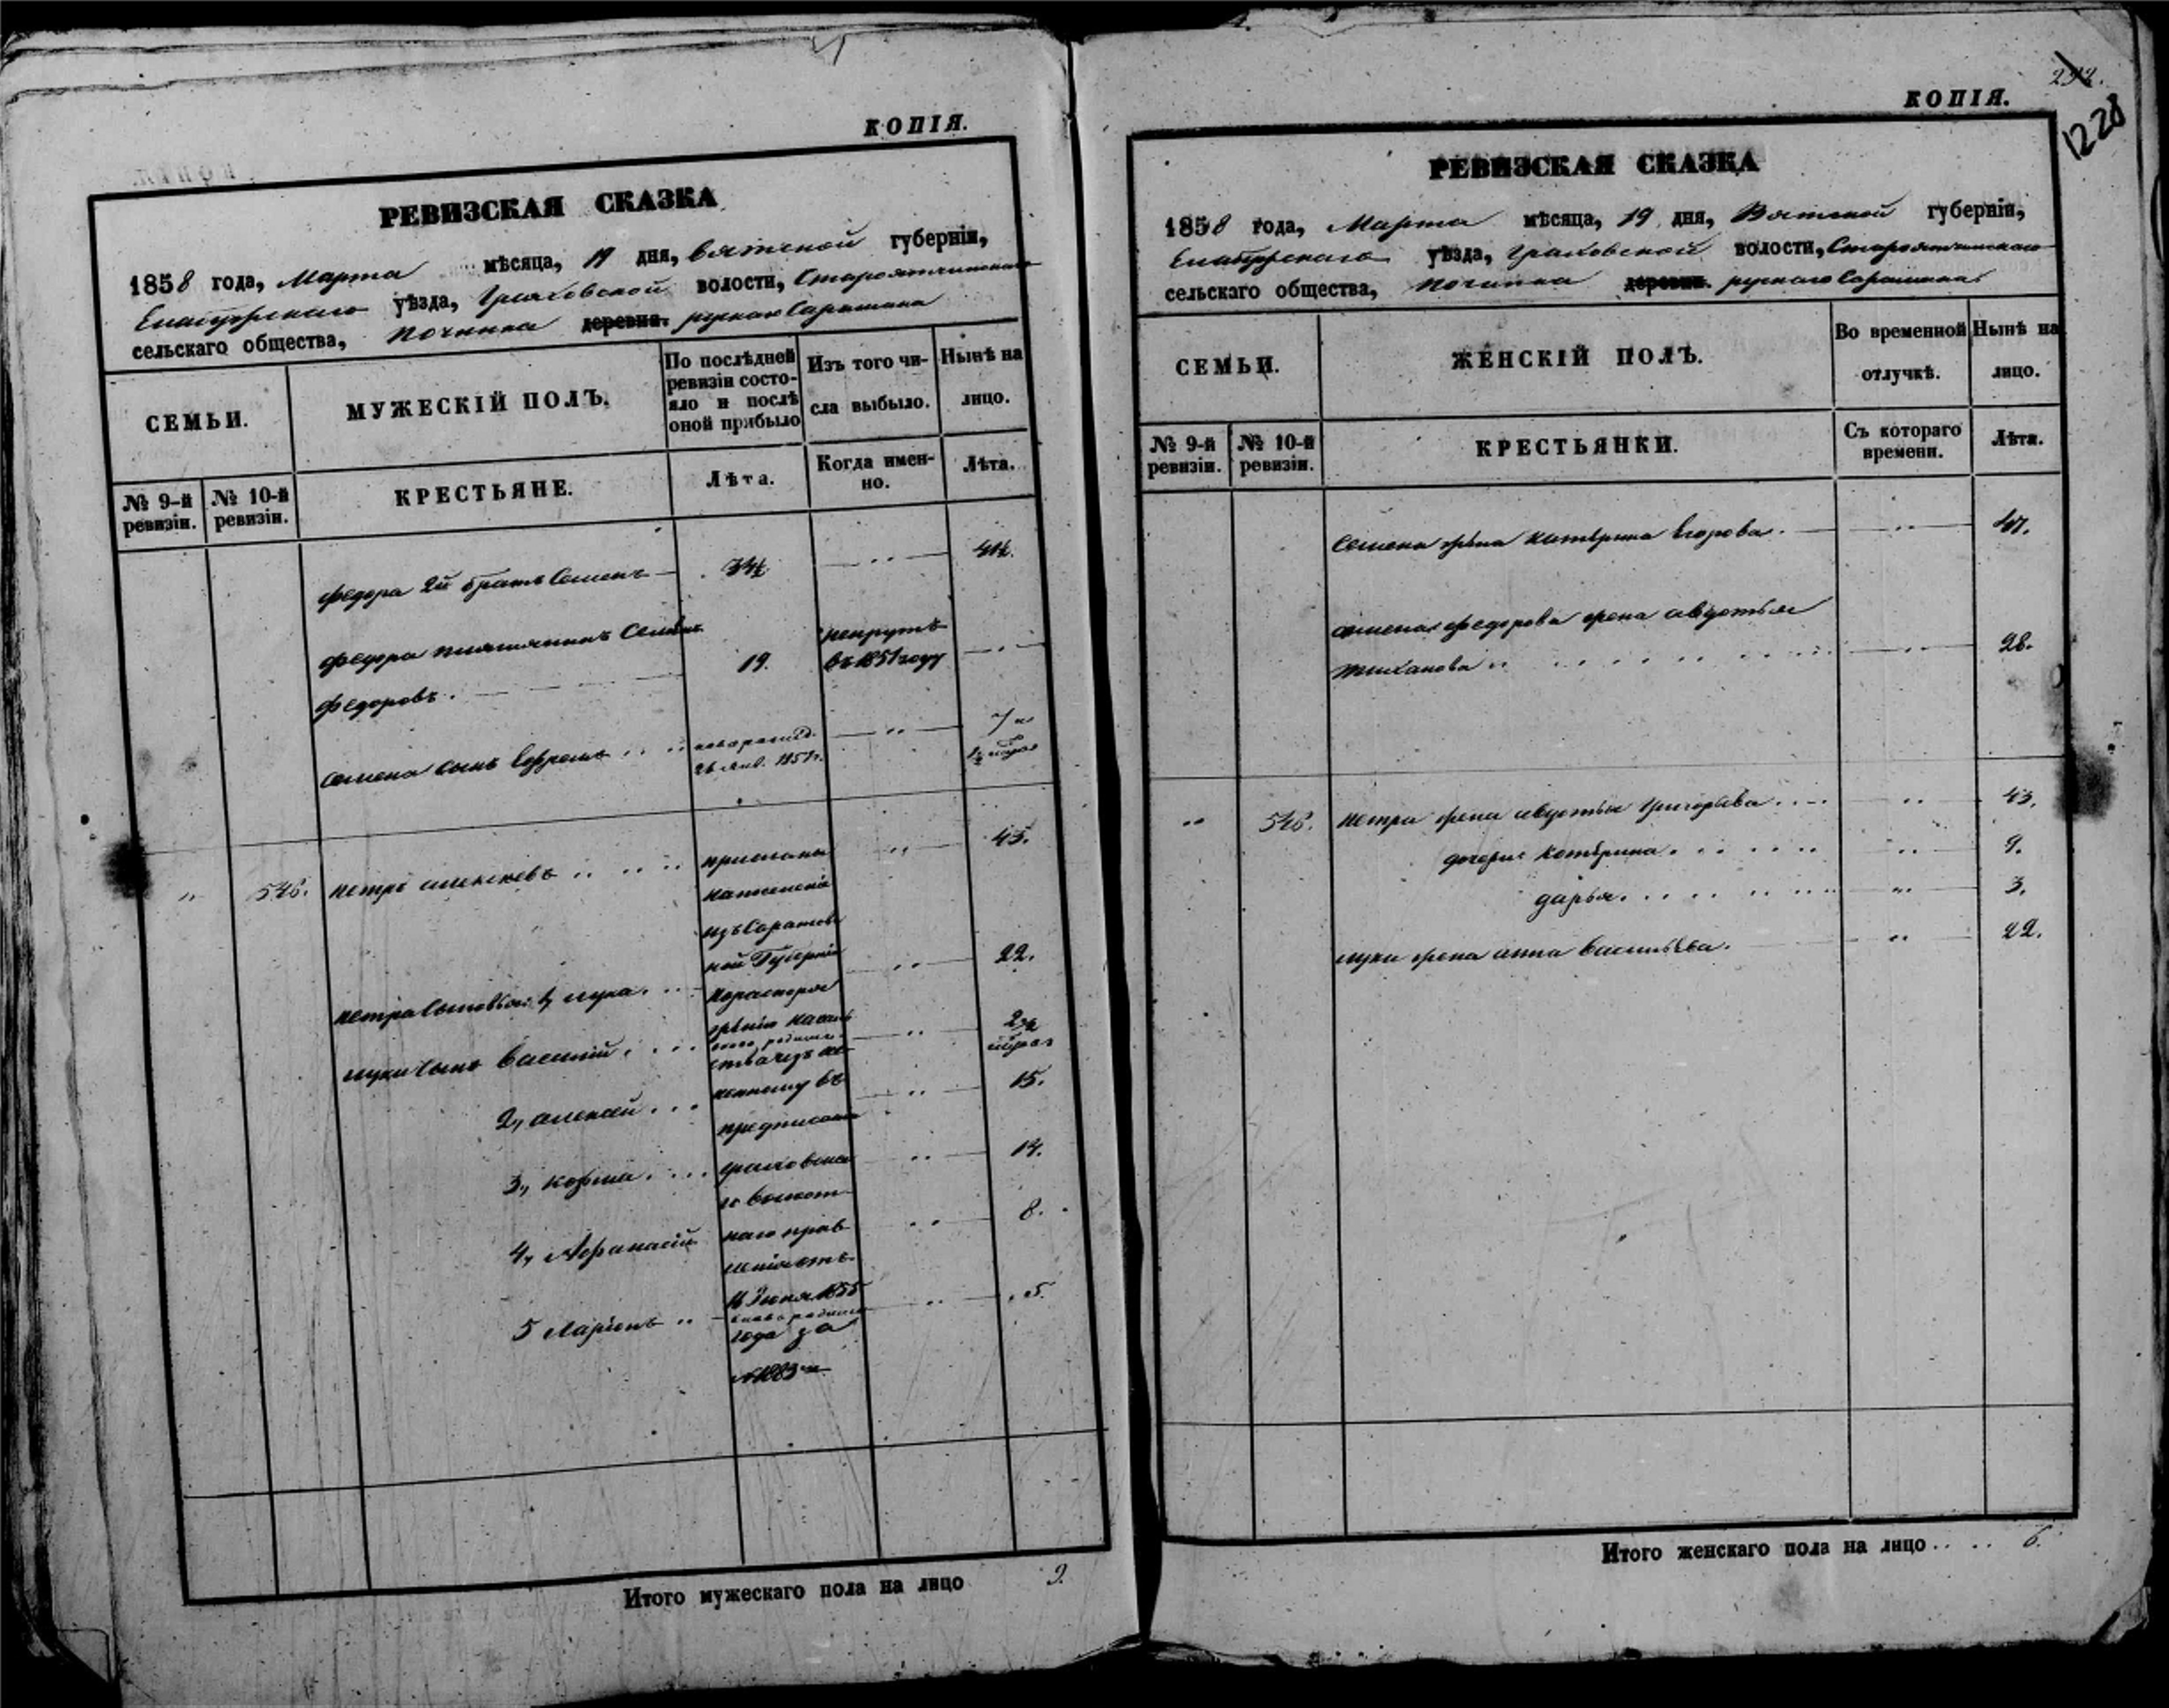 КОПІЯ.
РЕВИЗСКАЯ СКАЗКА
1858 года, Марта мѣсяца, 19 дня, Вятской губерніи,
Елабужскаго уѣзда, Граховской волости, Староятчинскаго
сельскаго общества, починка деревни. рускаго Сарамака
СЕМЬИ.
МУЖЕСКІЙ ПОЛЪ.
По послѣдней
ревизіи состо-
яло и послѣ
оной прибыло
Изъ того чи-
сла выбыло.
Нынѣ на
лицо.
№ 9-й
ревизіи.
№ 10-й
ревизіи.
КРЕСТЬЯНЕ.
Лѣта.
Когда имен-
но.
Лѣта.
Федора 2й братъ Семенъ
Федора племянникъ Семенъ
Федоровъ. 19. рекрутъ
въ 1851 году
Семена сынъ Ефремъ новорожд. 7 и
26 янв. 1851г.
546. Петръ Алексѣевъ присланы 45.
на поселеніе
изъ Саратов
ной Губерніи
Петра сыновья 1, Лука. 22.
по распоря
женію
Луки сынъ Василій
2, Алексѣй 15.
предписанію
3, Козма Граховска 14.
го волост
4, Афанасій наго прав 8.
ленія отъ
16 Іюня 1855
5 Ларіонъ 5.
года за
№1883м
Итого мужескаго пола на лицо 9.
КОПІЯ.
292.
1228
РЕВИЗСКАЯ СКАЗКА
1858 года, Марта мѣсяца, 19 дня, Вятской губерніи,
Елабужскаго уѣзда, Граховской волости, Староятчинскаго
сельскаго общества, починка деревни. рускаго Сарамака
СЕМЬИ.
ЖЕНСКІЙ ПОЛЪ.
Во временной
отлучкѣ.
Нынѣ на
лицо.
№ 9-й
ревизіи.
№ 10-й
ревизіи.
КРЕСТЬЯНКИ.
Съ котораго
времени.
Лѣта.
Семена жена Катерина Егорова. 47.
Семена Федорова жена Авдотья
28.
546. Петра жена Авдотья Григорьева 43.
дочери Катерина 9.
Дарья 3.
Луки жена Анна Васильева. 22.
Итого женскаго пола на лицо 6.